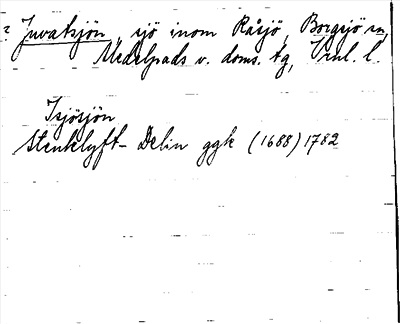 ? Juvatsjön, sjö inom Råsjö, Borgsjö sn,
Medelpads v. doms. tg, Vrnl. l.
Isjösjön
Stenklyft- Delin ggk (1688) 1782